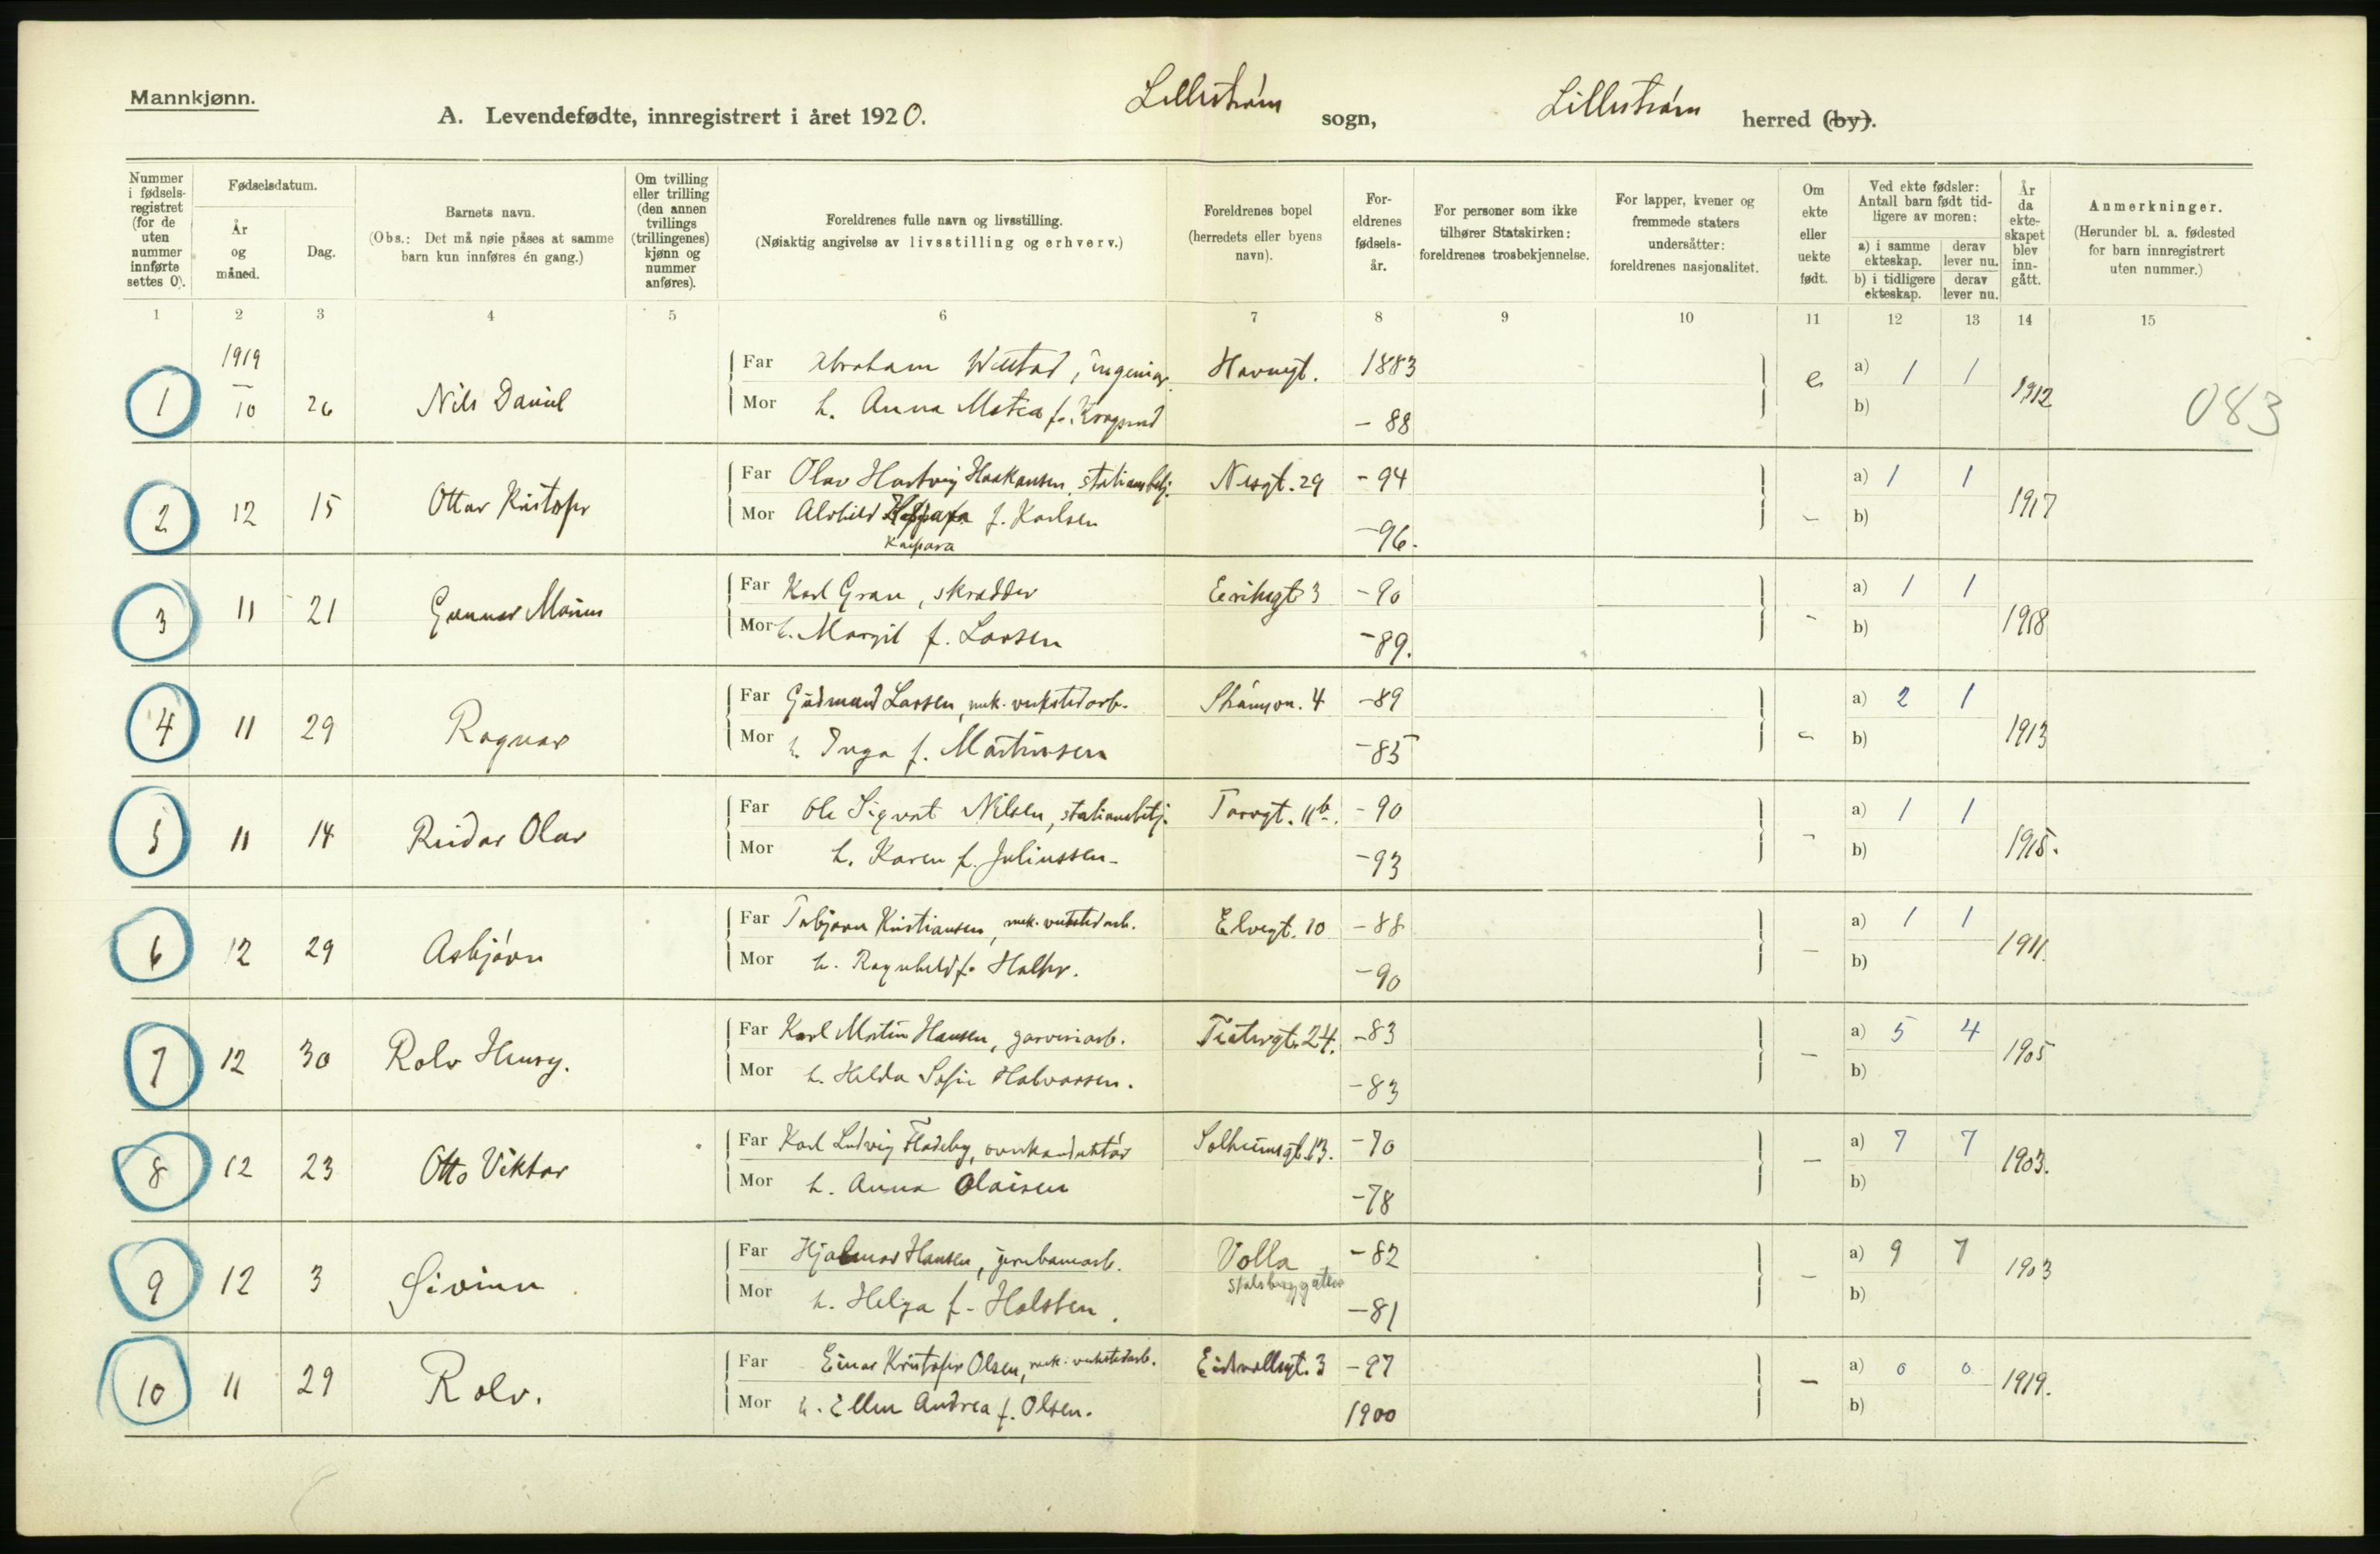 Mannkjønn.
A. Levendefødte, innregistrert i året 1920. Lillestrøm sogn, Lillestrøm herred (by).
Nummer i fødsels-registret (for de uten nummer innførte settes 0).
Fødselsdatum.
År og måned.
Dag.
Barnets navn.
(Obs.: Det må nøie påses at samme barn kun innføres én gang.)
Om tvilling eller trilling (den annen tvillings (trillingenes) kjønn og nummer anføres).
Foreldrenes fulle navn og livsstilling.
(Nøiaktig angivelse av livsstilling og erhverv.)
Foreldrenes bopel (herredets eller byens navn).
For-eldrenes fødsels-år.
For personer som ikke tilhører Statskirken: foreldrenes trosbekjennelse.
For lapper, kvener og fremmede staters undersåtter: foreldrenes nasjonalitet.
Om ekte eller uekte født.
Ved ekte fødsler: Antall barn født tid-ligere av moren:
a) i samme ekteskap. derav lever nu.
b) i tidligere ekteskap. derav lever nu.
År da ekte-skapet blev inn-gått.
Anmerkninger.
(Herunder bl. a. fødested for barn innregistrert uten nummer.)
1 2 3 4 5 6 7 8 9 10 11 12 13 14 15
1919
Far Abraham Wittad, ingeniør. Havngt. 1883 a) 1 1
1 10 26 Nils Daniel e 1912 083
Mor h. Anna Matea f. - 88 b)
Far Olav Hartvig Haakansen, stationsbetj. Nesgt. 29 - 94 a) 1 1
2 12 15 Ottar Kristofer - 1917
Mor Alvhild f. Karlsen - 96. b)
Kaspara
Far Karl Gran, skrædder 3 - 90 a) 1 1
3 11 21 Gunnar Marius - 1918
Mor h. Margit f. Larsen - 89. b)
Far Gudmund Larsen, mek. verkstedarb. 4 - 89 a) 2 1
4 11 29 Ragnar - 1913
Mor h. Inga f. Martinsen - 85 b)
Far Ole Sigvat Nilsen, stationsbetj. Torvgt. 11b. - 90 a) 1 1
5 11 14 Reidar Olav - 1915.
Mor h. Karen f. Juliussen - 93 b)
Far Torbjørn Kristiansen, mek. verkstedarb. Elvegt. 10 - 88 a) 1 1
6 12 29 Asbjørn - 1911.
Mor h. Ragnhild f. Holter. - 90 b)
Far Karl Martin Hansen, garveriarb. 24. - 83 a) 5 4
7 12 30 Rolv Henry. - 1905
Mor h. Hilda Sofie Halvorsen. - 83 b)
Far Karl Ludvig Fladeby, overkonduktør Solheimsgt. 13. - 70 a) 7 7
8 12 23 Otto Viktor - 1903.
Mor h. Anna Olaisen - 78 b)
Far Hjalmar Hansen, jernbanearb. Volla - 82 a) 9 7
Stalsberggaten
9 12 3 Øivinn - 1903
Mor h. Helga f. Holsten. - 81 b)
Far Einar Kristofer Olsen, mek. verkstedarb. Eidsvollsgt. 3 - 97 a) 0 0
10 11 29 Rolv. - 1919.
Mor h. Ellen Andrea f. Olsen. 1900 b)